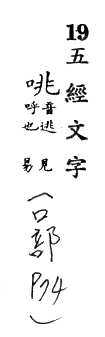 19五經文字
咷音逃呼也見易
(口部 P74)